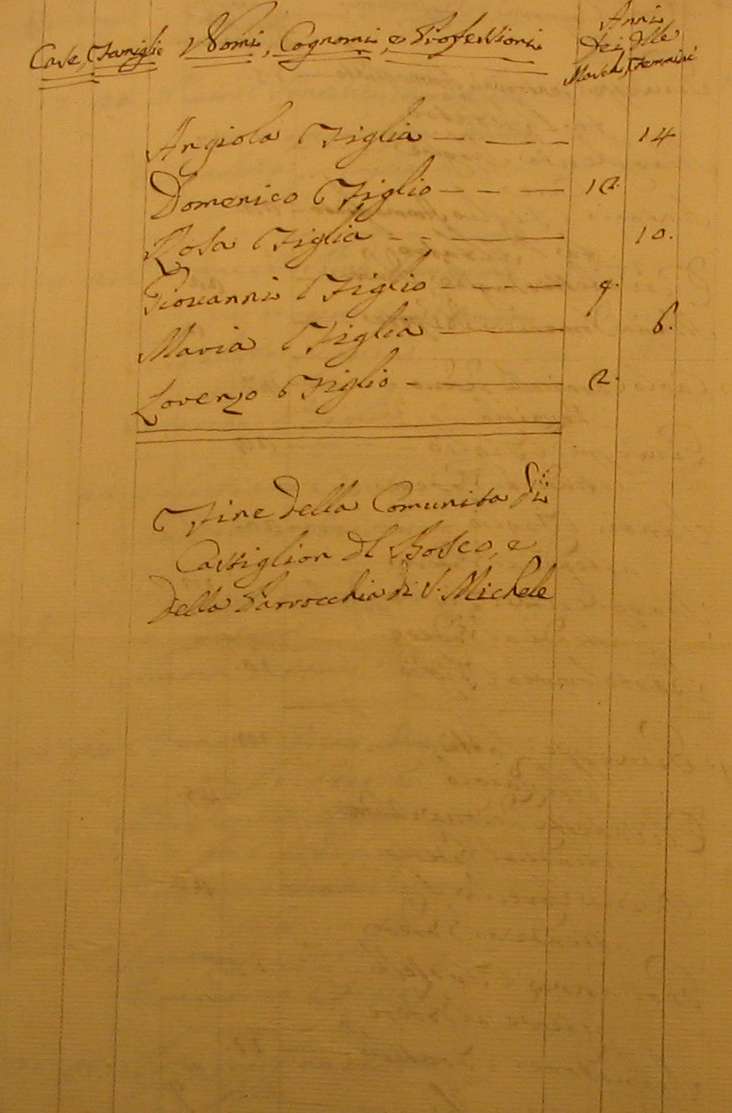 Case, Famiglie Nomi, Cognomi, e Professioni Anni
Dei, Delle
Maschi, Femmine
Angiola Figlia — — — 14
Domenico Figlio — — — 12.
Rosa Figlia — — — 10.
Giovanni Figlio — — — 9.
Maria Figlia — 6.
Lorenzo Figlio — — 2.
Fine della Comunita di
Castiglion del Bosco, e
della Parrocchia di S. Michele